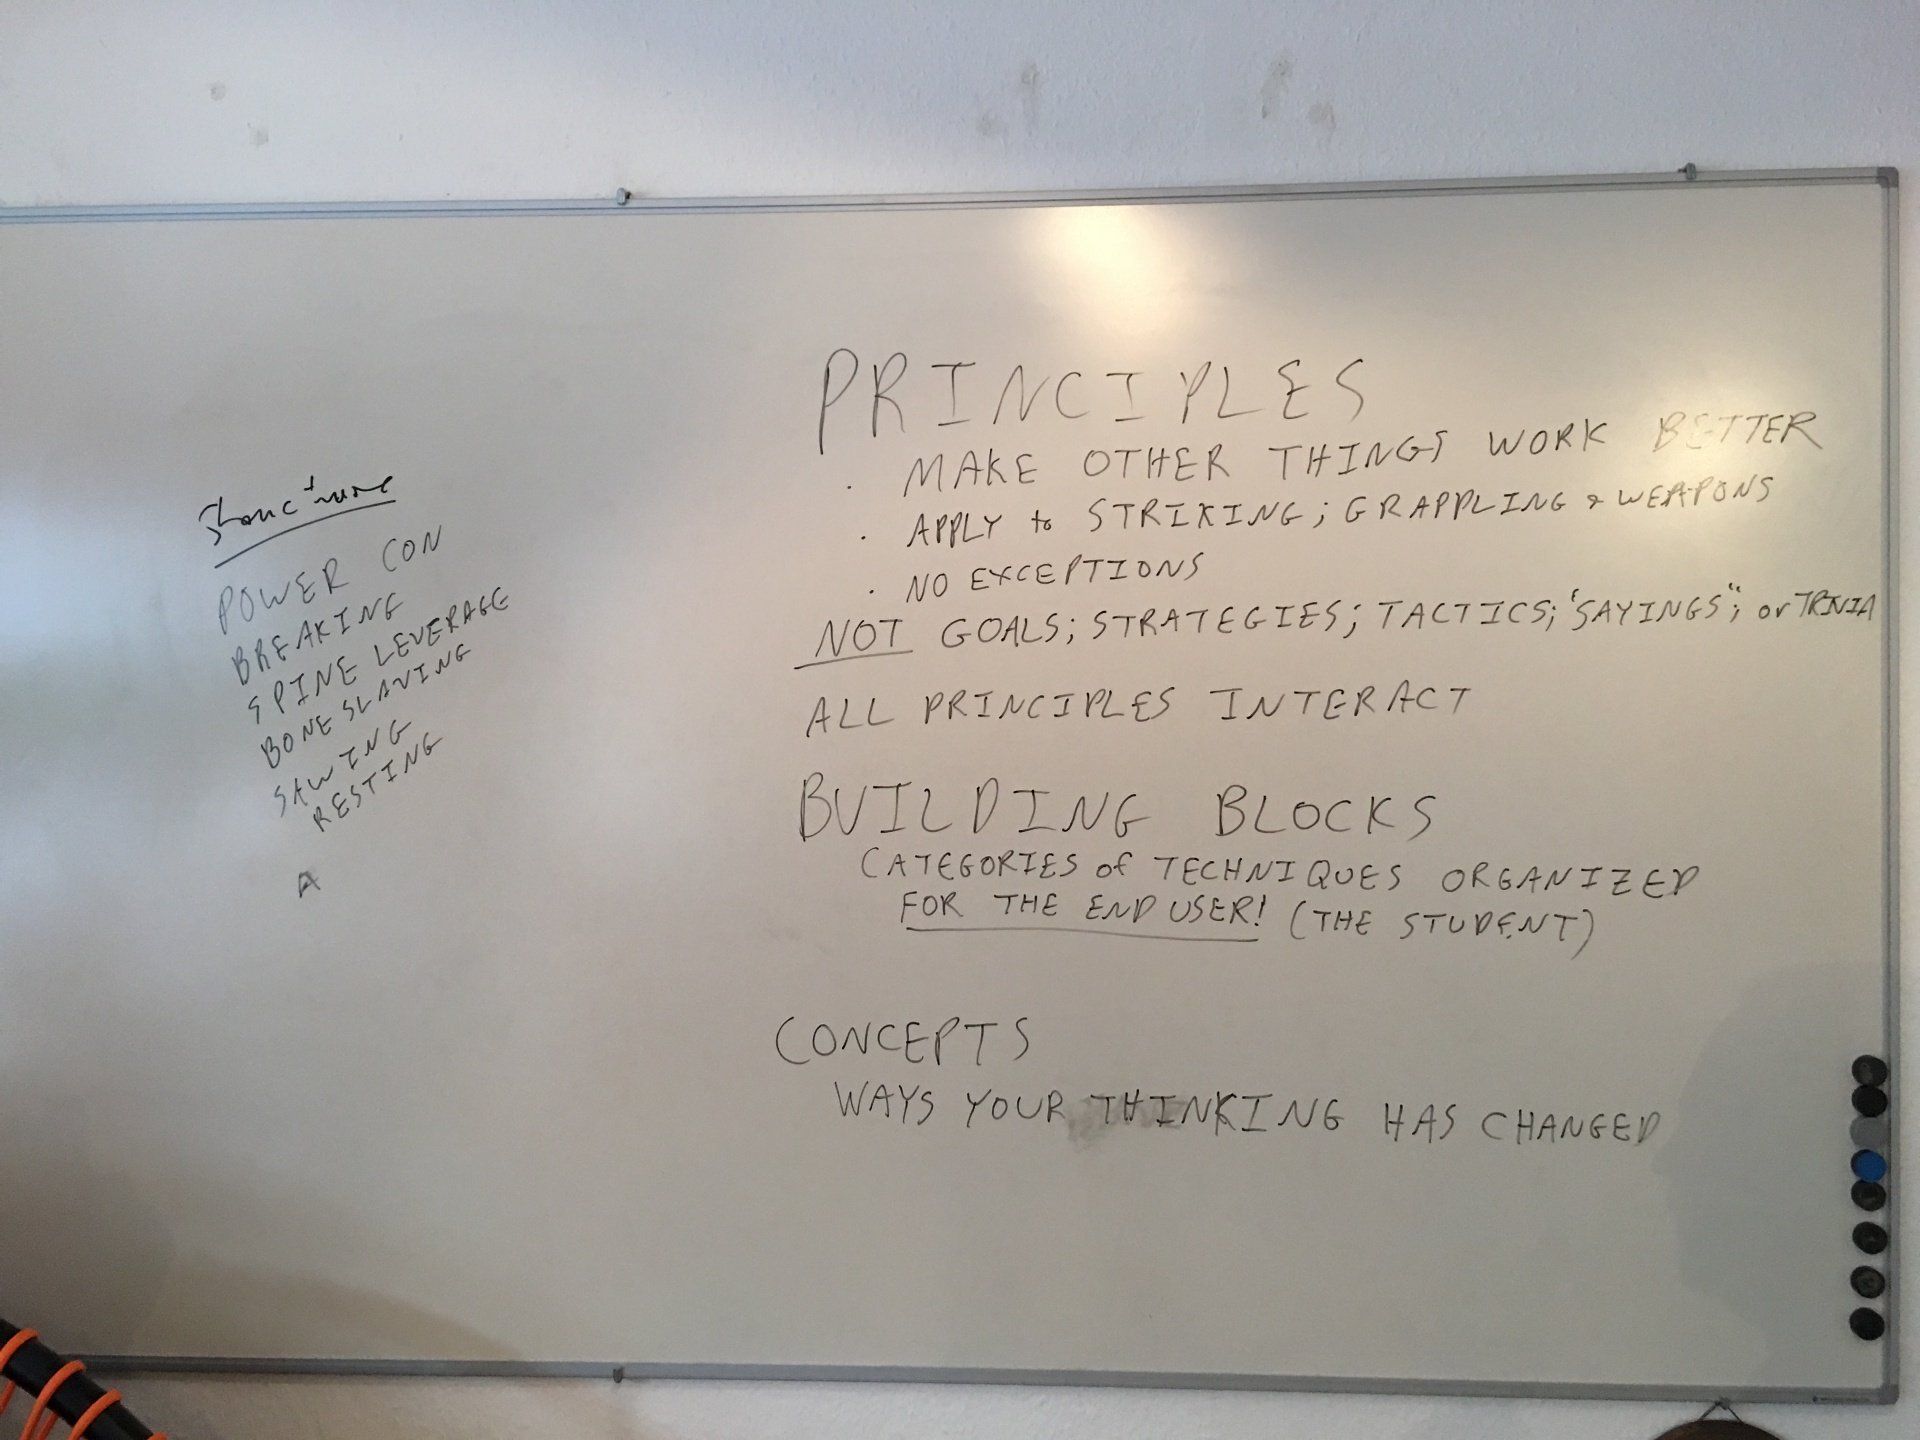 Structure
POWER CON
BREAKING
SPINE LEVERAGE
BONE SLAVING
SAWING
RESTING
A
PRINCIPLES
· MAKE OTHER THINGS WORK BETTER
· APPLY to STRIKING; GRAPPLING & WEAPONS
· NO EXCEPTIONS
NOT GOALS; STRATEGIES; TACTICS; "SAYINGS"; or TRIVIA
ALL PRINCIPLES INTERACT
BUILDING BLOCKS
CATEGORIES of TECHNIQUES ORGANIZED
FOR THE END USER! (THE STUDENT)
CONCEPTS
WAYS YOUR THINKING HAS CHANGED